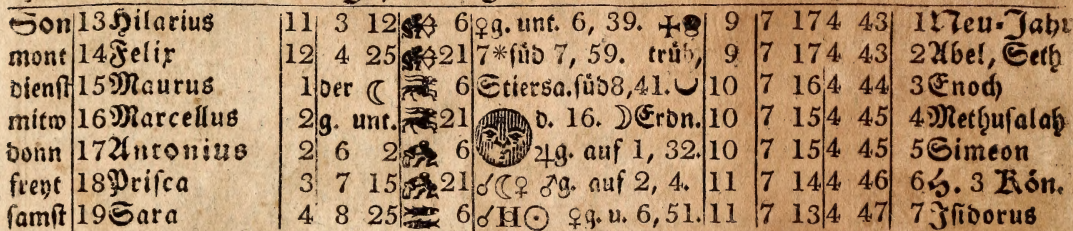 Son 13 Hilarius 11 3 12 6 ♀g. unt. 6, 39. 9 7 17 4 43 1 Neu-Jahr
mont 14 Felix 12 4 25 21 7*süd 7, 59. trüb, 9 7 17 4 43 2 Abel, Seth
dienst 15 Maurus 1 der ☾ 6 Stiersa.süd 8,41. 10 7 16 4 44 3 Enoch
mitw 16 Marcellus 2 g. unt. 21 d. 16. ☽Erdn. 10 7 15 4 45 4 Methusalah
donn 17 Antonius 2 6 2 6 ♃g. auf 1, 32. 10 7 15 4 45 5 Simeon
freyt 18 Prisca 3 7 15 21 ☌☾♀ ♂g. auf 2, 4. 11 7 14 4 46 6 H. 3 Kön.
samst 19 Sara 4 8 25 6 ☌H☉ ♀g. u. 6, 51. 11 7 13 4 47 7 Isidorus